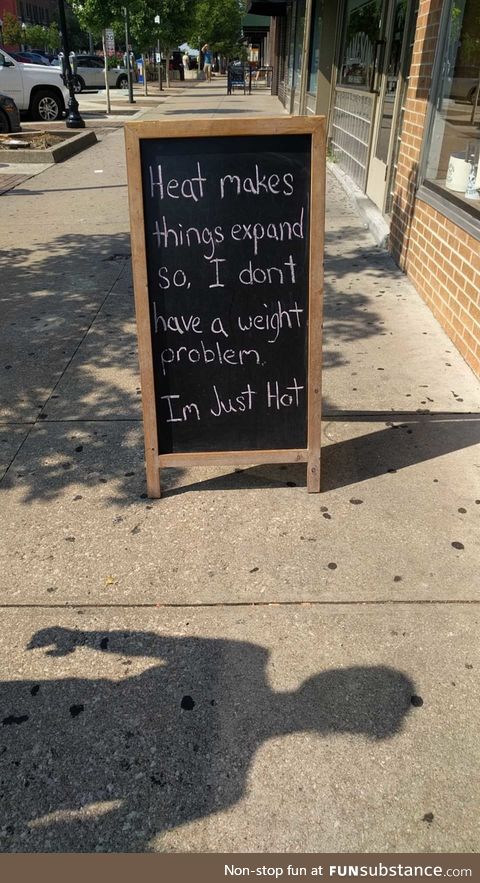 Heat makes
things expand
so, I dont
have a weight
problem.
Im Just Hot
Non-stop fun at FUNsubstance.com